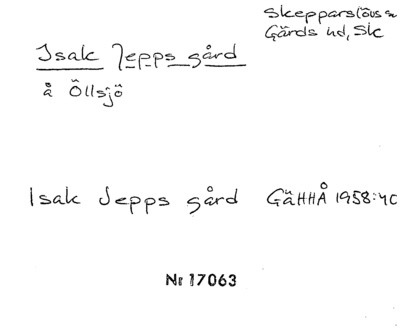 Skepparslövs sn
Gärds hd, Sk
Isak Jepps gård
å Öllsjö
Isak Jepps gård GäHHÅ 1958:40
Nr 17063